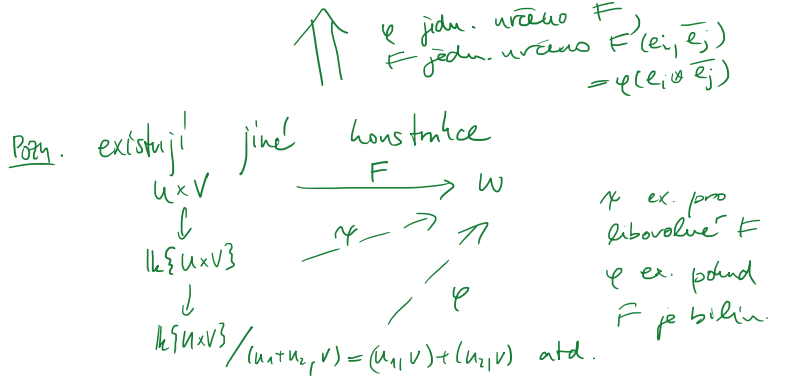 φ jedn. určeno F,
F jedn. určeno F(ei, ej)
= φ(ei ⊗ ej)
Pozn. existují jiné konstrukce
U × V F W
𝕜{U × V} ψ
φ
𝕜{U × V} / (u1+u2, v) = (u1, v) + (u2, v) atd.
ψ ex. pro
libovolné F
φ ex. pokud
F je bilin.